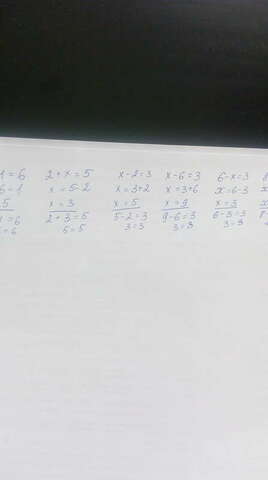 1=6
6-1
5
1=6
=6
2+x=5
x=5-2
x=3
2+3=5
5=5
x-2=3
x=3+2
x=5
5-2=3
3=3
x-6=3
x=3+6
x=9
9-6=3
3=3
6-x=3
x=6-3
x=3
6-3=3
3=3
8
x
x
8-